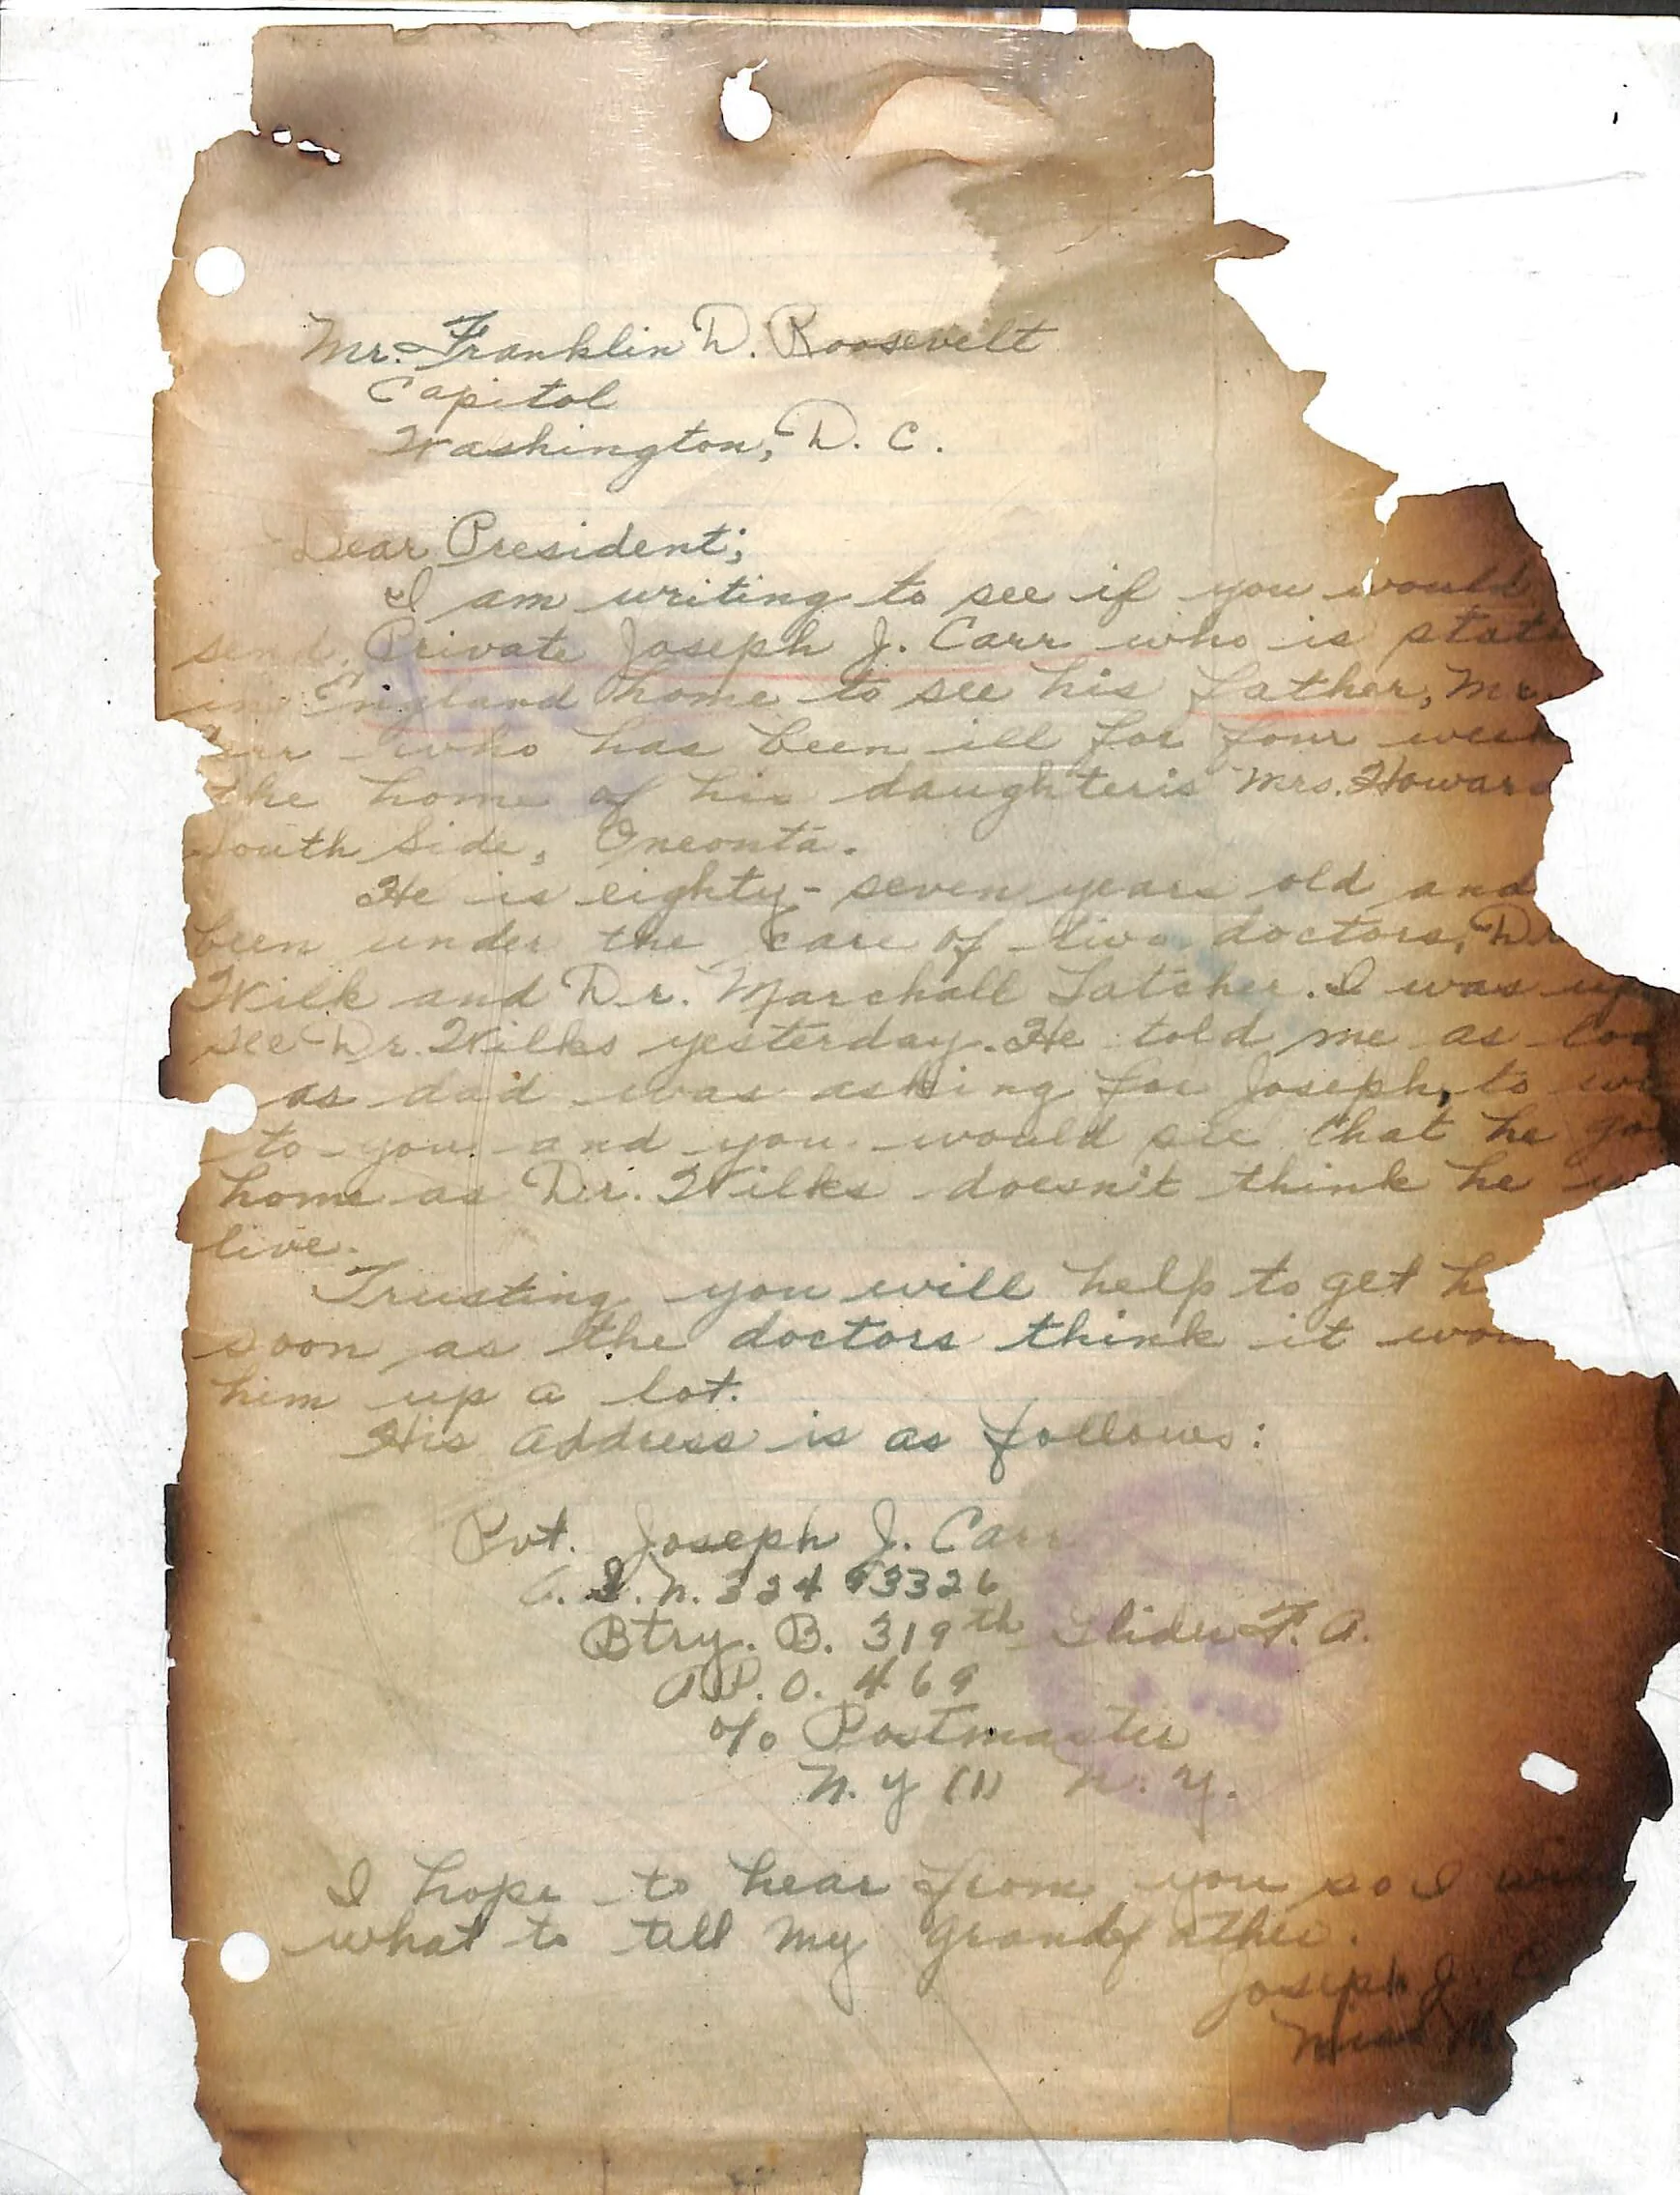 Mr. Franklin D. Roosevelt
Capitol
Washington, D. C.
Dear President;
I am writing to see if you would
send Private Joseph J. Carr who is stat
in England home to see his father, Mr
who has been ill for four week
the home of his daughteris Mrs. Howard
South Side, Oneonta.
He is eighty-seven years old and
been under the care of two doctors, Dr
Wilk and Dr. Marchall Latcher. I was up
see Dr. Wilks yesterday. He told me as lo
as dad was asking for Joseph, to w
to you and you would see that he go
home as Dr. Wilks doesn't think he w
live.
Trusting you will help to get h
soon as the doctors think it wou
him up a lot.
His address is as follows:
Pvt. Joseph J. Carr
A. S. N.
Btry. B. 319th Glider F. A.
A.P.O. 469
c/o Postmaster
N. Y (1) N. Y.
I hope to hear from you so I wi
what to tell my grandfather.
Joseph J. C